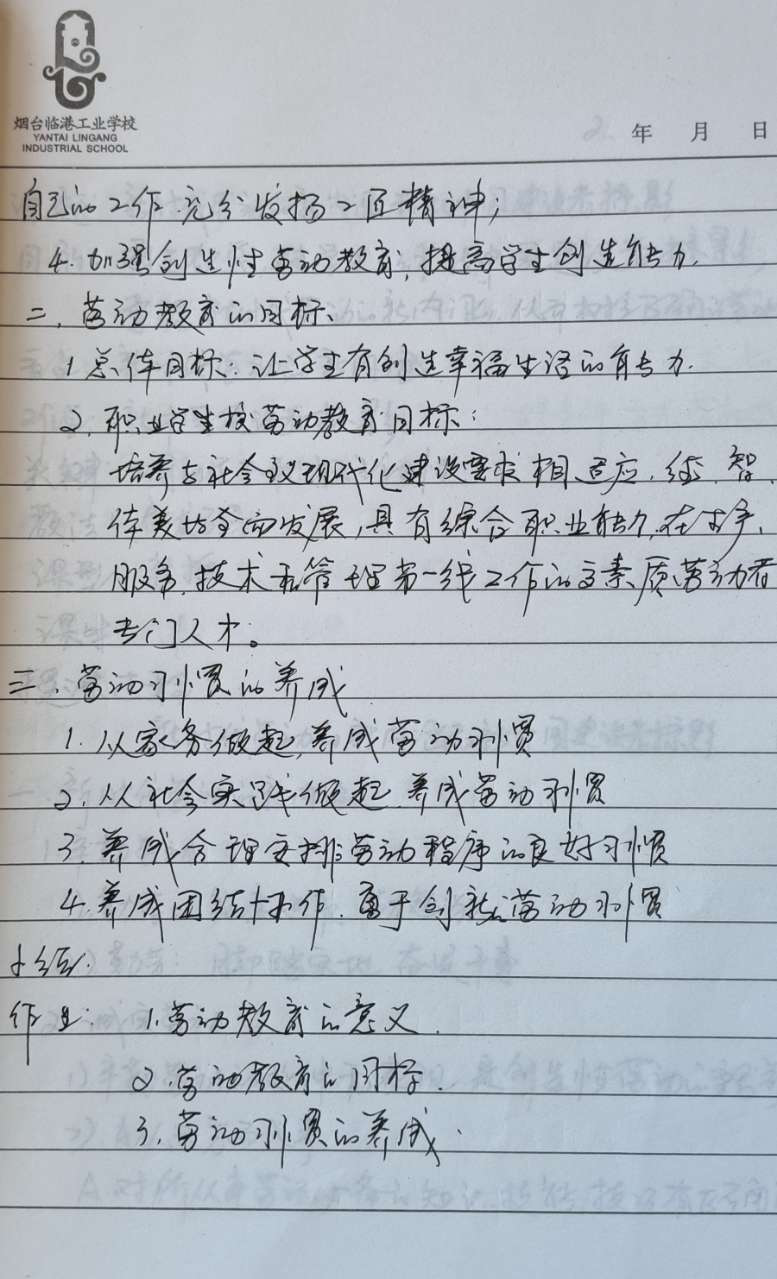 烟台临港工业学校
YANTAI LINGANG
INDUSTRIAL SCHOOL
年 月 日
自己的工作充分发扬工匠精神;
4. 加强创造性劳动教育,提高学生创造能力.
二、劳动教育的目标、
1 总体目标:让学生有创造幸福生活的能力.
2. 职业学生校劳动教育目标:
培养与社会主义现代化建设要求相适应,德、智、
体美劳全面发展,具有综合职业能力,在生产、
服务,技术和管理第一线工作的高素质劳动者
专门人才。
三、劳动习惯的养成
1. 从家务做起,养成劳动习惯
2. 从社会实践做起,养成劳动习惯
3 养成合理安排劳动程序的良好习惯
4. 养成团结协作,勇于创新的劳动习惯
小结:
作业: 1. 劳动教育的意义.
2. 劳动教育的目标.
3. 劳动习惯的养成.